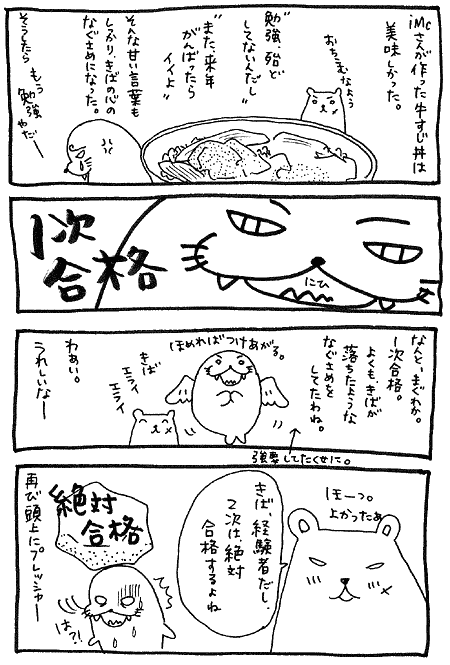 iMcさんが作った牛すじ丼は
美味しかった。
おちこむなよう
"勉強、殆ど
してないんだし"
"また、来年
がんばったら
イイよ"
そんな甘い言葉も
しっかり、きばの心の
なぐさめになった。
そうしたら もう
勉強
やだー
1次
合格
にひ
なんと、まぐれか。
1次合格。
よくも きばが
落ちたような
なぐさめを
してたわね。
強要してたくせに。
ほめればつけあがる。
きば
エライ
エライ
わぁい。
うれしいなー
ほーっ。
よかったぁ
きば、経験者だし、
2次は、絶対
合格するよね
絶対
合格
は?!
再び頭上にプレッシャー